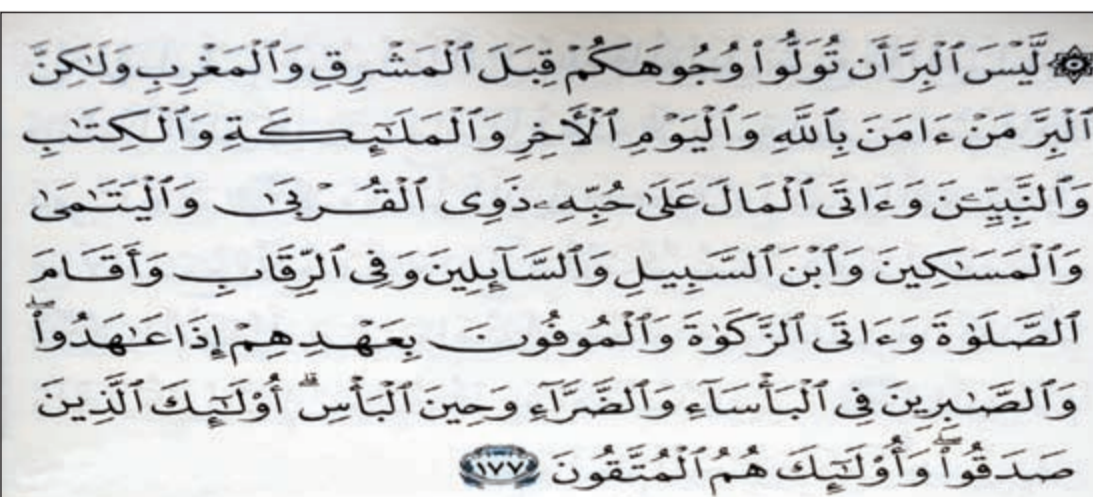 ۞ لَّيْسَ ٱلْبِرَّ أَن تُوَلُّوا۟ وُجُوهَكُمْ قِبَلَ ٱلْمَشْرِقِ وَٱلْمَغْرِبِ وَلَٰكِنَّ
ٱلْبِرَّ مَنْ ءَامَنَ بِٱللَّهِ وَٱلْيَوْمِ ٱلْأَخِرِ وَٱلْمَلَٰٓئِكَةِ وَٱلْكِتَٰبِ
وَٱلنَّبِيِّـۧنَ وَءَاتَى ٱلْمَالَ عَلَىٰ حُبِّهِۦ ذَوِى ٱلْقُرْبَىٰ وَٱلْيَتَٰمَىٰ
وَٱلْمَسَٰكِينَ وَٱبْنَ ٱلسَّبِيلِ وَٱلسَّآئِلِينَ وَفِى ٱلرِّقَابِ وَأَقَامَ
ٱلصَّلَوٰةَ وَءَاتَى ٱلزَّكَوٰةَ وَٱلْمُوفُونَ بِعَهْدِهِمْ إِذَا عَٰهَدُوا۟ ۖ
وَٱلصَّٰبِرِينَ فِى ٱلْبَأْسَآءِ وَٱلضَّرَّآءِ وَحِينَ ٱلْبَأْسِ ۗ أُو۟لَٰٓئِكَ ٱلَّذِينَ
صَدَقُوا۟ ۖ وَأُو۟لَٰٓئِكَ هُمُ ٱلْمُتَّقُونَ ١٧٧